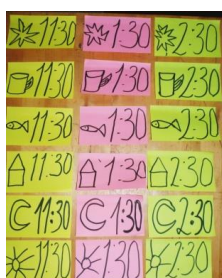 11:30 1:30 2:30
11:30 1:30 2:30
11:30 1:30 2:30
11:30 1:30 2:30
11:30 1:30 2:30
11:30 1:30 2:30